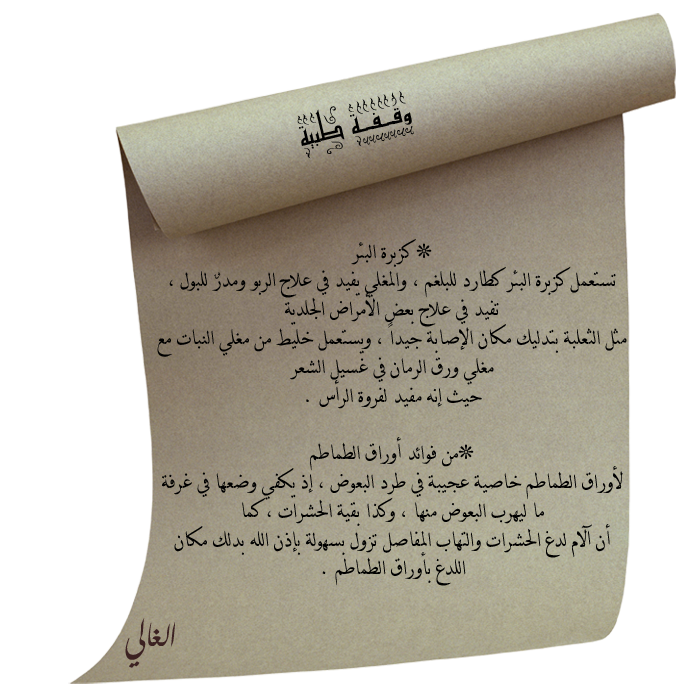 وقفة طبية
❊كزبرة البئر
تستعمل كزبرة البئر كطارد للبلغم ، والمغلي يفيد في علاج الربو ومدرٌ للبول ،
تفيد في علاج بعض الأمراض الجلدية
مثل الثعلبة بتدليك مكان الإصابة جيداً ، ويستعمل خليط من مغلي النبات مع
مغلي ورق الرمان في غسيل الشعر
حيث إنه مفيد لفروة الرأس .
❊من فوائد أوراق الطماطم
لأوراق الطماطم خاصية عجيبة في طرد البعوض ، إذ يكفي وضعها في غرفة
ما ليهرب البعوض منها ، وكذا بقية الحشرات ، كما
أن آلام لدغ الحشرات والتهاب المفاصل تزول بسهولة بإذن الله بدلك مكان
اللدغ بأوراق الطماطم .
الغالي